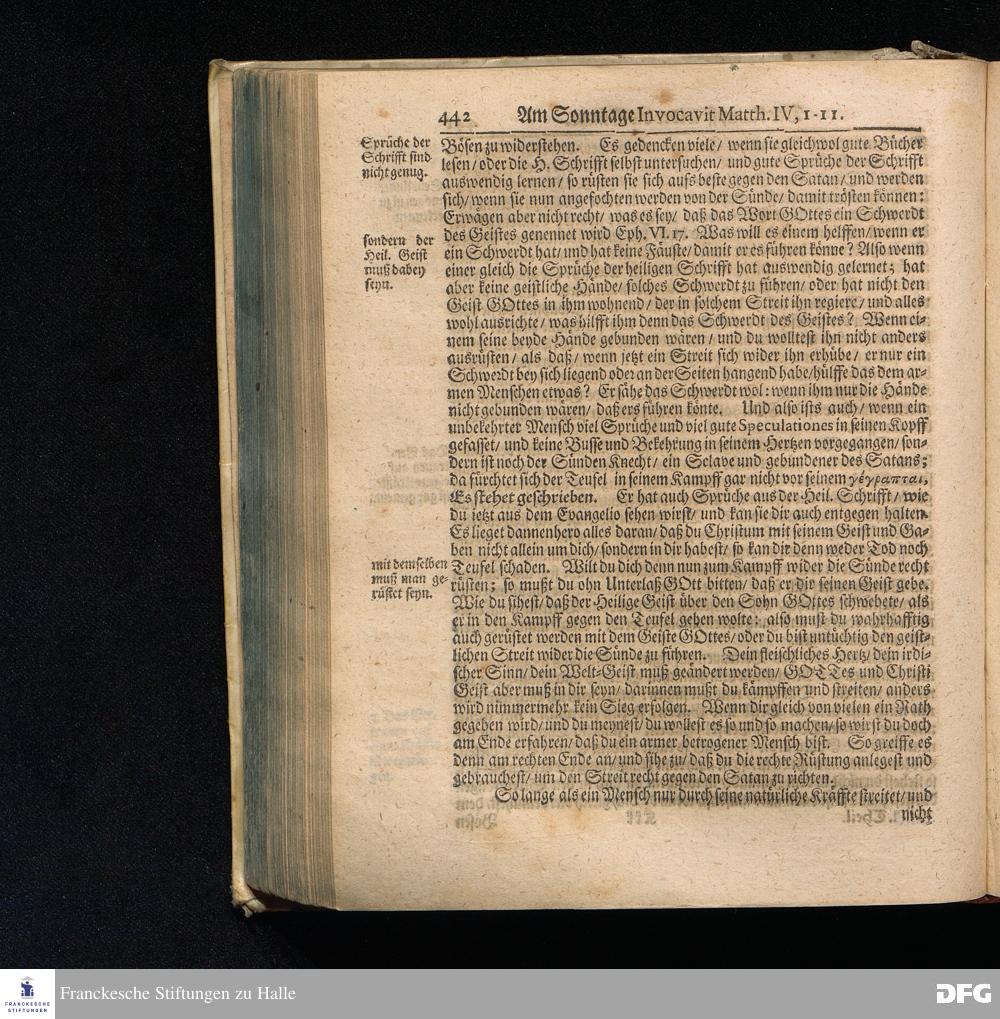 442 Am Sonntage Invocavit Matth. IV, 1-11.
Sprüche der
Schrifft sind
nicht genug.
Bösen zu widerstehen. Es gedencken viele / wenn sie gleichwol gute Bücher
lesen / oder die H. Schrifft selbst untersuchen / und gute Sprüche der Schrifft
auswendig lernen / so rüsten sie sich aufs beste gegen den Satan / und werden
sich / wenn sie nun angefochten werden von der Sünde / damit trösten können:
Erwägen aber nicht recht / was es sey / daß das Wort GOttes ein Schwerdt
des Geistes genennet wird Eph. VI. 17. Was will es einem helffen / wenn er
sondern der
Heil. Geist
muß dabey
seyn.
ein Schwerdt hat / und hat keine Fäuste / damit er es führen könne? Also wenn
einer gleich die Sprüche der heiligen Schrifft hat auswendig gelernet; hat
aber keine geistliche Hände / solches Schwerdt zu führen / oder hat nicht den
Geist GOttes in ihm wohnend / der in solchem Streit ihn regiere / und alles
wohl ausrichte / was hilfft ihm denn das Schwerdt des Geistes? Wenn ei-
nem seine beyde Hände gebunden wären / und du wolltest ihn nicht anders
ausrüsten / als daß / wenn jetzt ein Streit sich wider ihn erhübe / er nur ein
Schwerdt bey sich liegend oder an der Seiten hangend habe / hülffe das dem ar-
men Menschen etwas? Er sähe das Schwerdt wol: wenn ihm nur die Hände
nicht gebunden wären / daß ers führen könte. Und also ists auch / wenn ein
unbekehrter Mensch viel Sprüche und viel gute Speculationes in seinen Kopff
gefasset / und keine Busse und Bekehrung in seinem Hertzen vorgegangen / son-
dern ist noch der Sünden Knecht / ein Sclave und gebundener des Satans;
da fürchtet sich der Teufel in seinem Kampff gar nicht vor seinem γέγραπται,
Es stehet geschrieben. Er hat auch Sprüche aus der Heil. Schrifft / wie
du ietzt aus dem Evangelio sehen wirst / und kan sie dir auch entgegen halten.
Es lieget dannenhero alles daran / daß du Christum mit seinem Geist und Ga-
ben nicht allein um dich / sondern in dir habest / so kan dir denn weder Tod noch
mit demselben
muß man ge-
rüstet seyn.
Teufel schaden. Wilt du dich denn nun zum Kampff wider die Sünde recht
rüsten; so mußt du ohn Unterlaß GOtt bitten / daß er dir seinen Geist gebe.
Wie du sihest / daß der Heilige Geist über den Sohn GOttes schwebete / als
er in den Kampff gegen den Teufel gehen wolte: also must du wahrhafftig
auch gerüstet werden mit dem Geiste GOttes / oder du bist untüchtig den geist-
lichen Streit wider die Sünde zu führen. Dein fleischliches Hertz / dein irdi-
scher Sinn / dein Welt-Geist muß geändert werden / GOTTes und Christi
Geist aber muß in dir seyn / darinnen mußt du kämpffen und streiten / anders
wird nimmermehr kein Sieg erfolgen. Wenn dir gleich von vielen ein Rath
gegeben wird / und du meynest / du wollest es so und so machen / so wirst du doch
am Ende erfahren / daß du ein armer betrogener Mensch bist. So greiffe es
denn am rechten Ende an / und sihe zu / daß du die rechte Rüstung anlegest und
gebrauchest / um den Streit recht gegen den Satan zu richten.
So lange als ein Mensch nur durch seine natürliche Kräffte streitet / und
nicht
FRANCKESCHE
STIFTUNGEN
Franckesche Stiftungen zu Halle
DFG